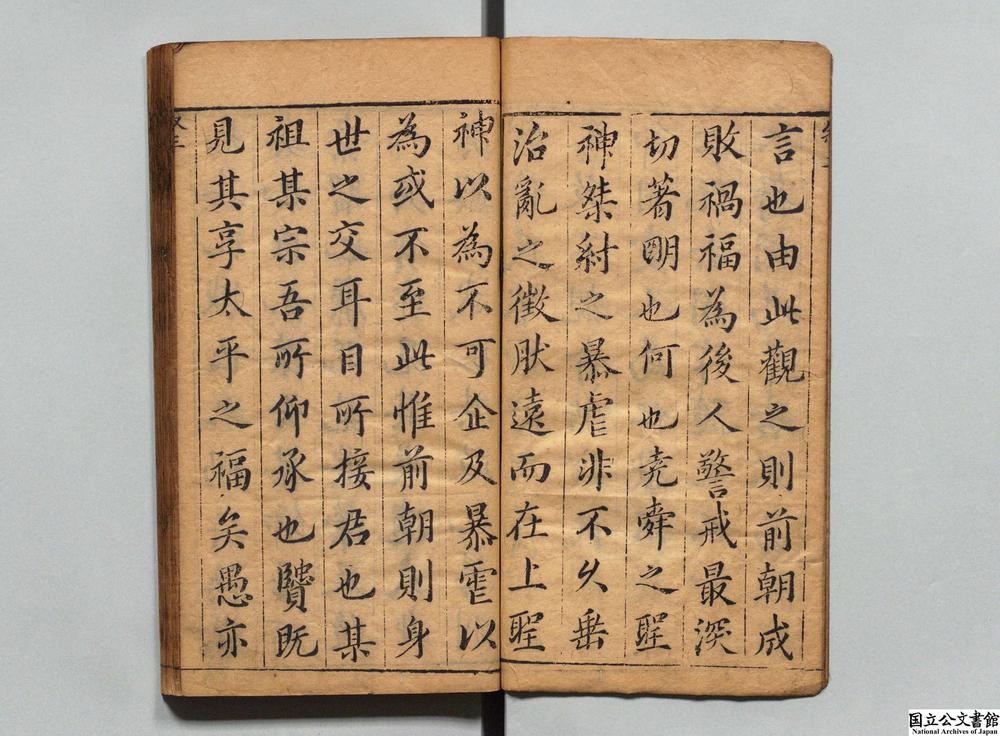 言也由此觀之則前朝成
敗禍福為後人警戒最深
切著明也何也堯舜之聖
神桀紂之暴虐非不久垂
治亂之徵肰遠而在上聖
神以為不可企及暴虐以
為或不至此惟前朝則身
世之交耳目所接君也某
祖某宗吾所仰承也贊既
見其享太平之福矣愚亦
国立公文書館
National Archives of Japan